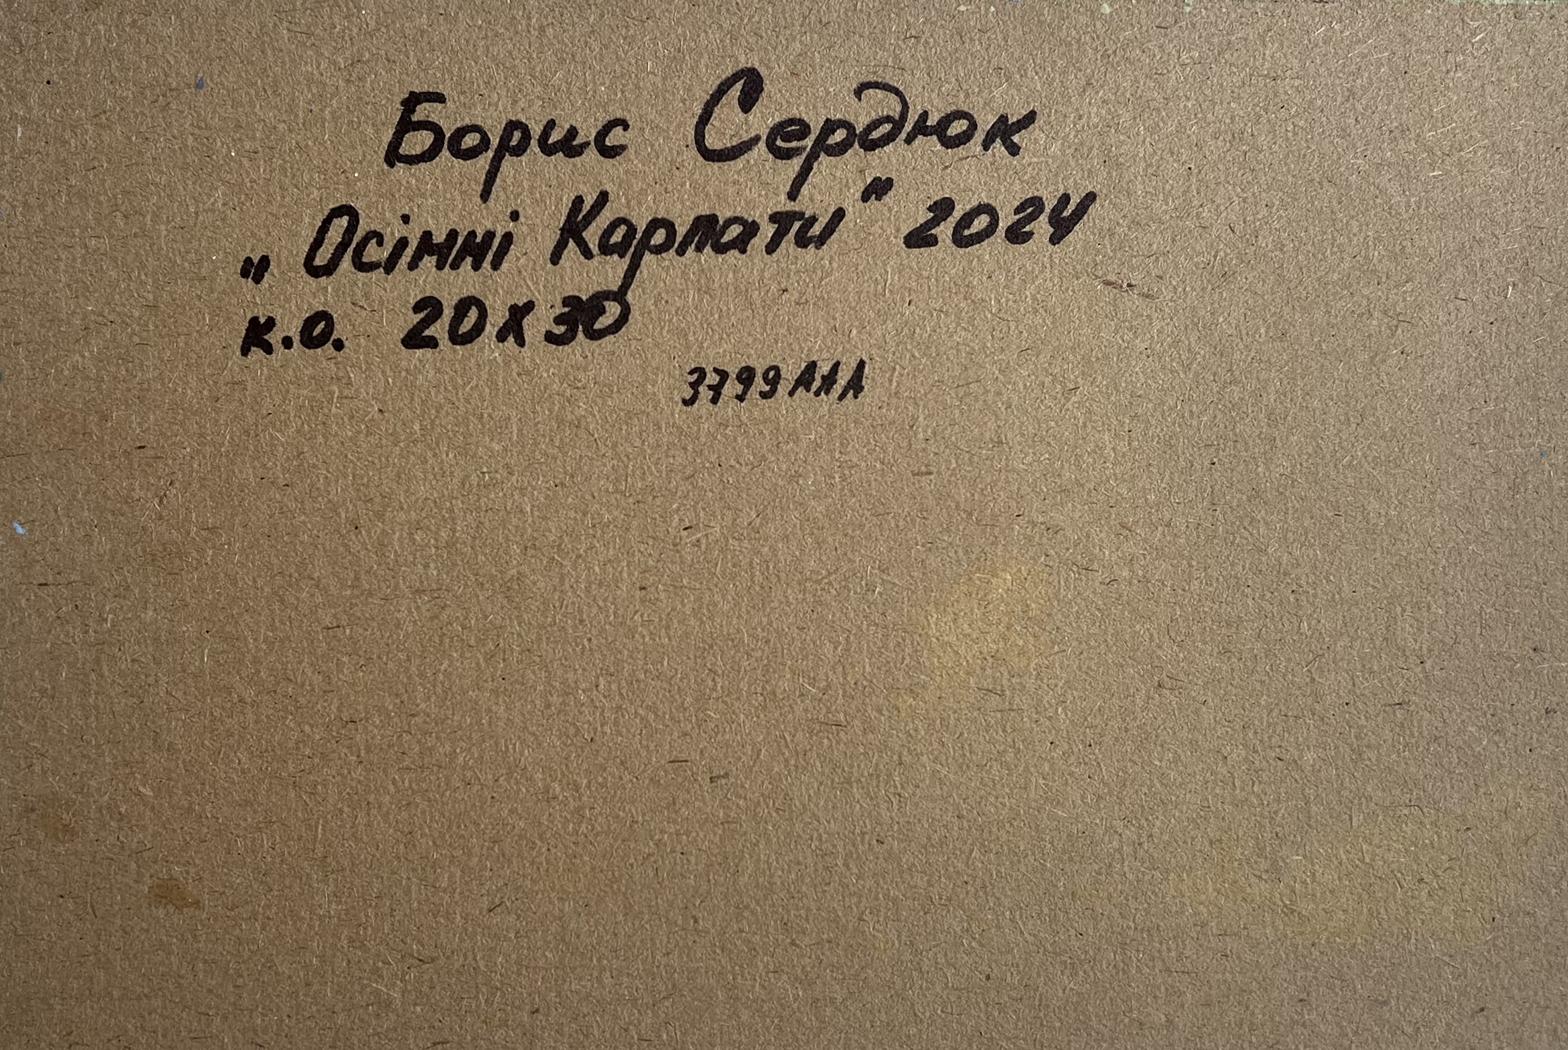 Борис Сердюк
„Осінні Карпати" 2024
к.о. 20х30
3799АНА